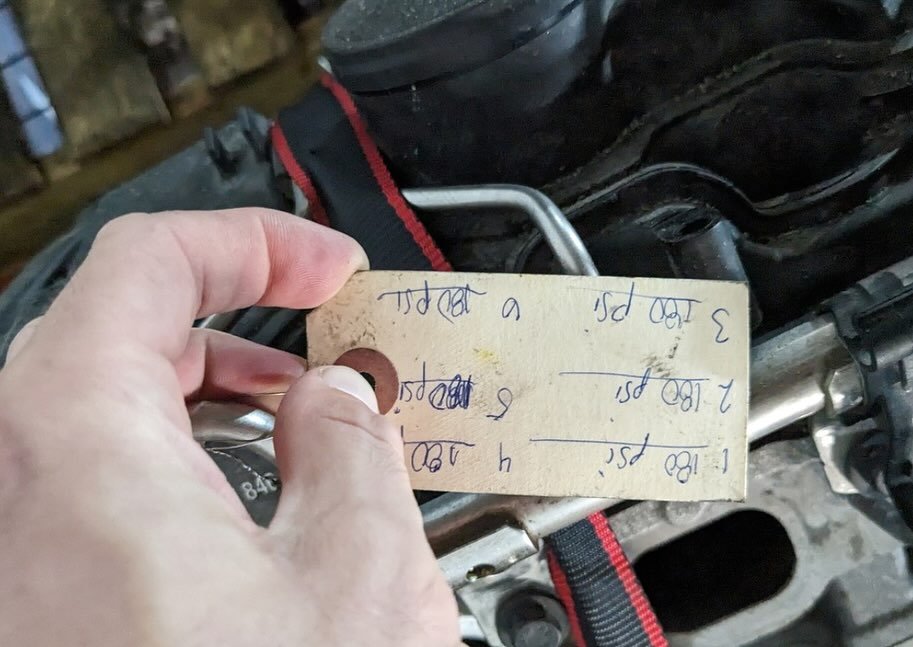 1 180 psi 4 180
2 180 psi 5 180psi
3 180 psi 6 180 psi